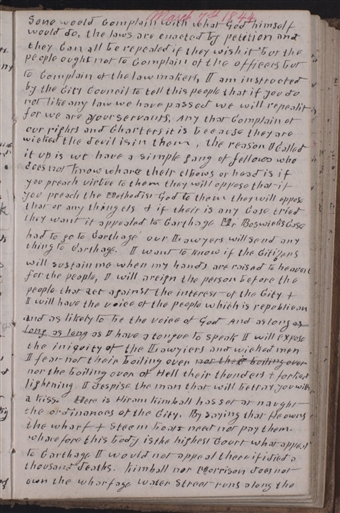 March 7th 1844
Some would Complain with what God himself
would do, the laws are enacted by petition and
they Can all be repealed if they wish it but the
people ought not to Complain of the officers but
to Complain of the law makers, I am instructed
by the City Council to tell this people that if you do
not like any law we have passed we will repeal it
for we are your servants, Any that Complain of
our rights and Charters it is because they are
wicked the devil is in them, the reason I called
it up is we have a simple gang of fellows who
does not know where their elbows or head is if
you preach virtue to them they will oppose that if
you preach the Methodist God to them they will oppose
that or any thing els & if their is any Case tried
they want it appealed to Carthage Mr Boswicks Case
had to go to Carthage our Lawyers will send any
thing to Carthage. I want to know if the Citizens
will sustain me when my hands are raised to heaven
for the people, I will areign the person before the
people that act against the interest of the City &
I will have the voice of the people which is republican
and as likely to be the voice of God And as long as
long as long as I have a tongue to speak I will expose
the iniquity of the Lawyers and wicked men
I fear not their boiling over
nor the boiling over of Hell their thunders & forked
lightning I despise the man that will betray you with
a kiss. Here is Hiram kimball has set at naught
the ordinances of the City. By saying that he owns
the wharf & Steem boats need not pay them
wharefore this body is the highest Court what appeal
to Carthage I would not appeal there if i died a
thousand deaths. kimball nor Morrison does not
own the wharfage water Street runs along the